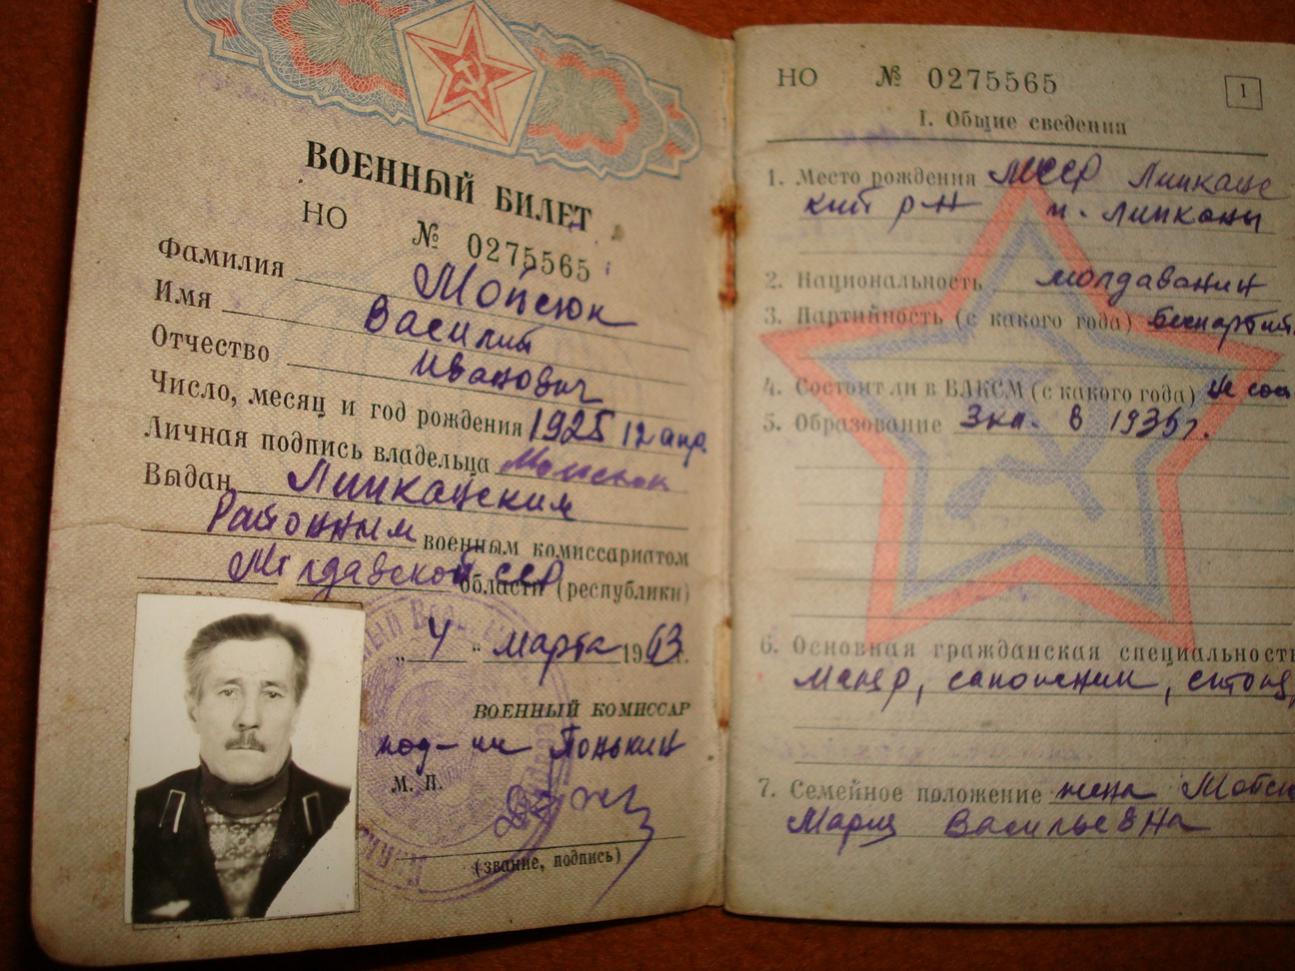 ВОЕННЫЙ БИЛЕТ
НО № 0275565
Фамилия Мойсюк
Имя Василий
Отчество Иванович
Число, месяц и год рождения 1925 12 апр.
Личная подпись владельца Мойсюк
Выдан Липканским
Районным военным комиссариатом
Молдавской ССР области (республики)
„ 4 " марта 1963 г.
ВОЕННЫЙ КОМИССАР
под-к Понькин
М. П.
(звание, подпись)
НО № 0275565 1
I. Общие сведения
1. Место рождения МССР Липканс
кий р-н п. Липканы
2. Национальность молдаванин
3. Партийность (с какого года) беспартий
4. Состоит ли в ВЛКСМ (с какого года) не сос
5. Образование 3 кл. в 1935 г.
6. Основная гражданская специальность
7. Семейное положение жена Мойс
Мария Васильевна